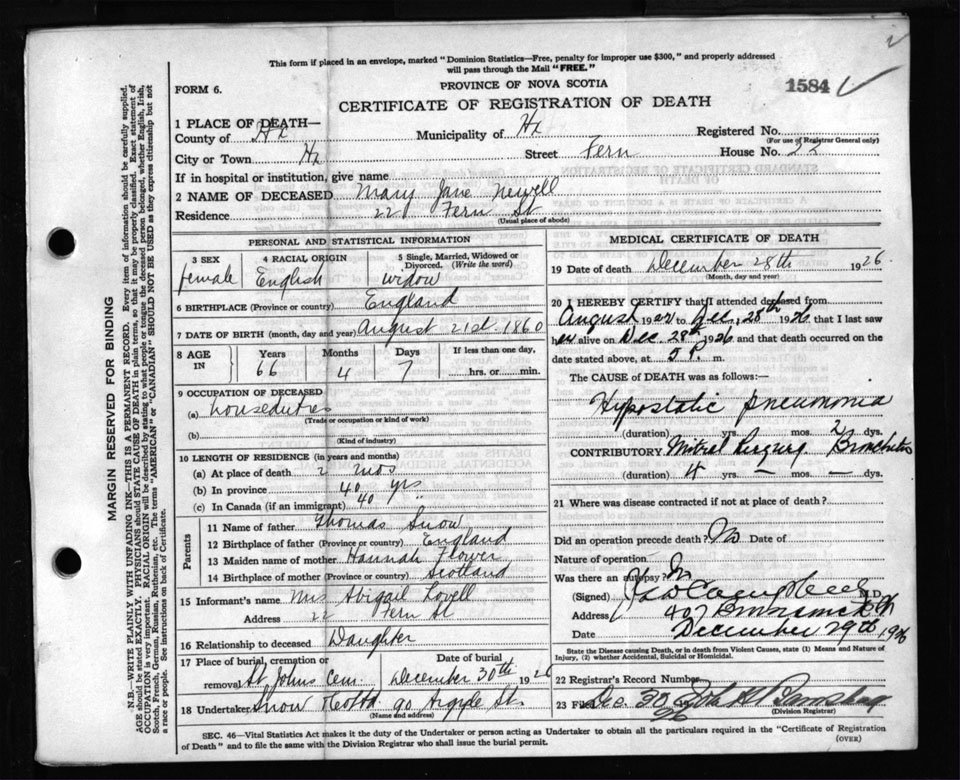 This form if placed in an envelope, marked "Dominion Statistics—Free, penalty for improper use $300," and properly addressed
will pass through the Mail "FREE."
FORM 6.
PROVINCE OF NOVA SCOTIA
1584
CERTIFICATE OF REGISTRATION OF DEATH
1 PLACE OF DEATH—
County of Hx Municipality of Hx Registered No.
(For use of Registrar General only)
City or Town Hx Street Fern House No. 22
If in hospital or institution, give name
2 NAME OF DECEASED Mary Jane Newell
Residence 22 Fern St
(Usual place of abode)
PERSONAL AND STATISTICAL INFORMATION
3 SEX 4 RACIAL ORIGIN 5 Single, Married, Widowed or Divorced. (Write the word)
female English widow
6 BIRTHPLACE (Province or country) England
7 DATE OF BIRTH (month, day and year) August 21st. 1860
8 AGE IN Years Months Days If less than one day,
66 4 7 hrs. or min.
9 OCCUPATION OF DECEASED
(a) houseduties
(Trade or occupation or kind of work)
(b)
(Kind of industry)
10 LENGTH OF RESIDENCE (in years and months)
(a) At place of death 2 mos
(b) In province 40 yrs
(c) In Canada (if an immigrant) 40 "
Parents
11 Name of father Thomas Snow
12 Birthplace of father (Province or country) England
13 Maiden name of mother Hannah Flower
14 Birthplace of mother (Province or country) Scotland
15 Informant's name Mrs Abigail Lovell
Address 22 Fern St
16 Relationship to deceased Daughter
17 Place of burial, cremation or removal St Johns Cem. Date of burial December 30th 1926
18 Undertaker Snow & Co Ltd 90 Argyle St.
(Name and address)
MEDICAL CERTIFICATE OF DEATH
19 Date of death December 28th 1926.
(Month, day and year)
20 I HEREBY CERTIFY that I attended deceased from
August 1922 to Dec. 28th 1926 that I last saw
her alive on Dec. 28th 1926 and that death occurred on the
date stated above, at 5 P. m.
The CAUSE OF DEATH was as follows:—
Hypostatic Pneumonia
(duration) yrs. mos. 2 dys.
CONTRIBUTORY Mitral Bronchitis
(duration) 4 yrs. — mos. — dys.
21 Where was disease contracted if not at place of death?
Did an operation precede death? No Date of
Nature of operation
Was there an autopsy? No
(Signed) M.D.
Address 407
Date December 29th 1926
State the Disease causing Death, or in death from Violent Causes, state (1) Means and Nature of
Injury, (2) whether Accidental, Suicidal or Homicidal.
22 Registrar's Record Number
23 Filed Dec. 30 26
(Division Registrar)
SEC. 46—Vital Statistics Act makes it the duty of the Undertaker or person acting as Undertaker to obtain all the particulars required in the "Certificate of Registration
of Death" and to file the same with the Division Registrar who shall issue the burial permit.
(OVER)
MARGIN RESERVED FOR BINDING
N.B.—WRITE PLAINLY WITH UNFADING INK—THIS IS A PERMANENT RECORD. Every item of information should be carefully supplied.
AGE should be stated EXACTLY. PHYSICIANS should STATE CAUSE OF DEATH in plain terms, so that it may be properly classified. Exact statement of
OCCUPATION is very important. RACIAL ORIGIN will be described by stating to what people or tongue the deceased person belonged, whether English, Irish,
Scotch, French, German, Russian, Ruthenian, etc. The terms "AMERICAN" or "CANADIAN" SHOULD NOT BE USED as they express citizenship but not
a race or people. See instructions on back of Certificate.